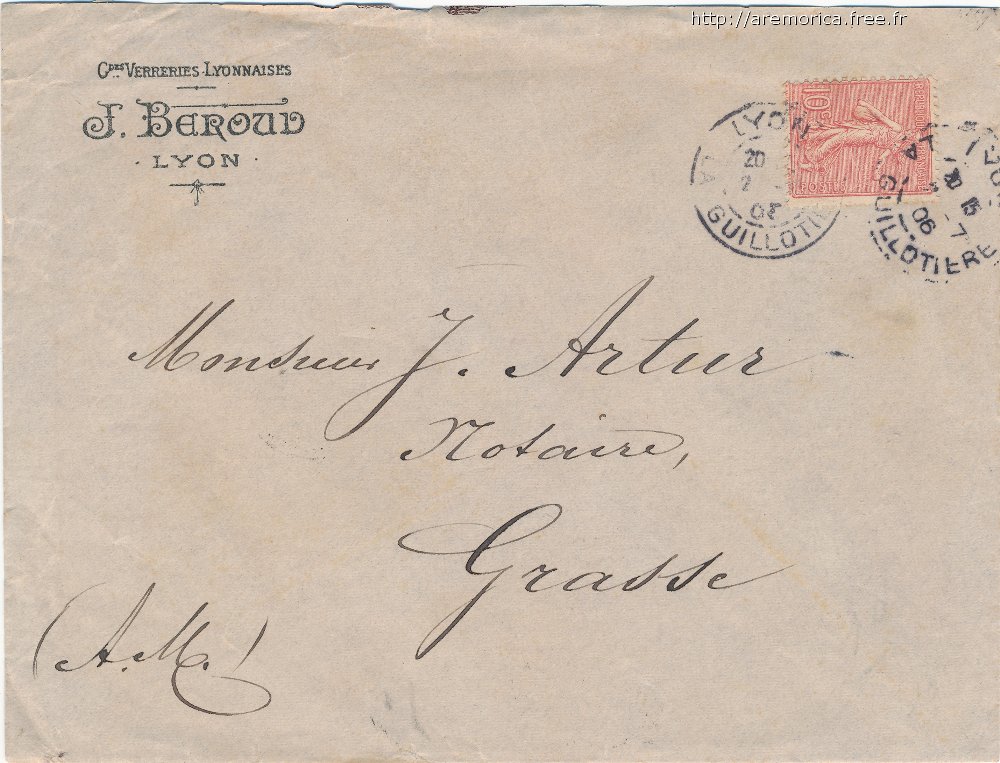 http://aremorica.free.fr
Gdes VERRERIES LYONNAISES
J. BEROUD
· LYON ·
LYON
20
7
06
LA GUILLOTIE
10
POSTES
LA GUILLOTIERE
20 15
7
06
Monsieur J. Artur
Notaire,
Grasse
(A.M.)